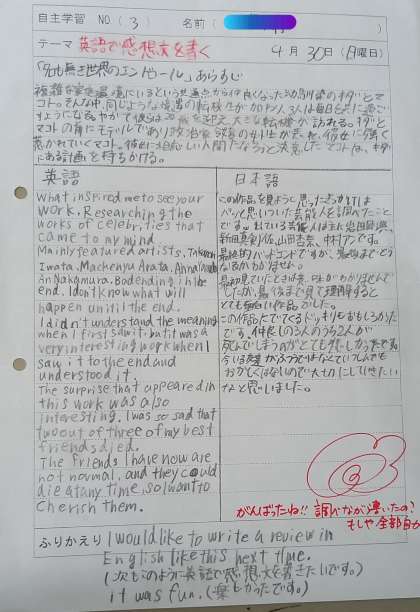 自主学習 NO(3) 名前(
テーマ 英語で感想文を書く 4月30日(日曜日)
「名も無き世界のエンドロール」あらすじ
複雑な家庭環境にいるという共通点から仲良くなった幼馴染のキダとマ
コト。そんな中、同じような境遇の転校生が加わり、3人は毎日を共に過ご
すようになる。やがて彼らは20歳を迎え大きな転機が訪れる。キダと
マコトの前にモデルであり政治家令嬢の女性が表れ、彼女に強く
惹かれていくマコト。彼女に相応しい人間になろうと決意したマコトは、キダ
にある計画を持ちかける。
英語 日本語
What inspired me to see your
work, Researching the
works of celebrities that
came to my mind.
Mainly featured artists, Takanori
Iwata, Machenyu Arata, Anna
Nakamura. Bad ending in the
end. I don't know what will
happen until the end.
I didn't understand the meaning
when I first saw it, but it was a
very interesting work when I
saw it to the end and
understood it.
The surprise that appeared in
this work was also
interesting. I was so sad that
two out of three of my best
friends died.
The friends I have now are
not normal, and they could
die at any time, so I want to
cherish them.
この作品を見ようと思ったきっかけは
パッと思いついた芸能人を調べたこと
です。主に出ている芸能人は、岩田剛典、
新田真剣佑、山田杏奈、中村アンです。
最終的バッドエンドですが、最後までどう
なるかわかりません。
最初見ていたときは、意味がわかりませんで
したが、最後まで見て理解すると
とても面白い作品でした。
この作品にでてくるドッキリもおもしろかった
です。仲良しの3人のうち2人が
死んでしまうのがとても悲しかったです。
今いる友達があたりまえではなくていつ死んでも
おかしくはないので大切にしていきたい
なと思いました。
がんばったね!! 調べながら書いたの?
もしや全部自力
ふりかえり I would like to write a review in
English like this next time.
(次もこのように英語で感想文を書きたいです。)
it was fun. (楽しかったです。)